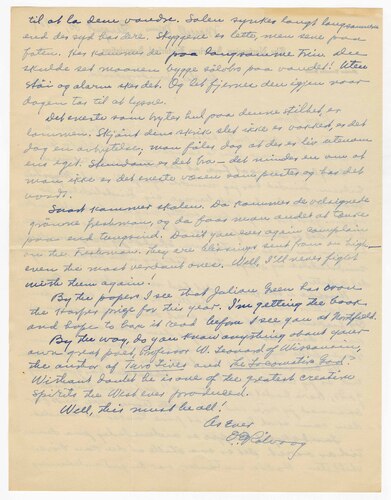 til at la dem vandre. Solen synker langt langsommere
end des syd paa dere. Skyggene er lette, men sene paa
foten. Her kommer de paa langsomme trin den
skulde set maanen bygge sölvbo paa vandet! Uten
stöi og alarm sker det. Og let fjernes den igjen naar
dagen tar til at lysne.
Det eneste som bryter hul paa denne stilhet, er
lommen. Skjönt dens skrik slet ikke er vakkert, er det
dog en avbrytelse, man föler dog at der er liv utenom
ens eget. Stundom er det bra — det mindes en om at
man ikke er det eneste væsen som puster og har det
vondt.
Snart kommer skolen. Da kommer de velsignede
grönne freshman, og da faar man andet at tænke
paa end tungsind. Don't you ever again complain
on the Freshman. They are blessings sent from on high—
even the most verdant ones. Well, I'll never fight
with them again!
By the papers I see that Julian Green has won
the Harper prize for this year. I'm getting the book
and hope to have it read before I see you at Northfield.
By the way, do you know anything about your
own great poet, Professor W. Leonard of Wisconsin,
the author of Two Lives and The Locomotive God?
Without doubt he is one of the greatest creative
spirits the West ever produced.
Well, this must be all!
As Ever
O.E. Rölvaag